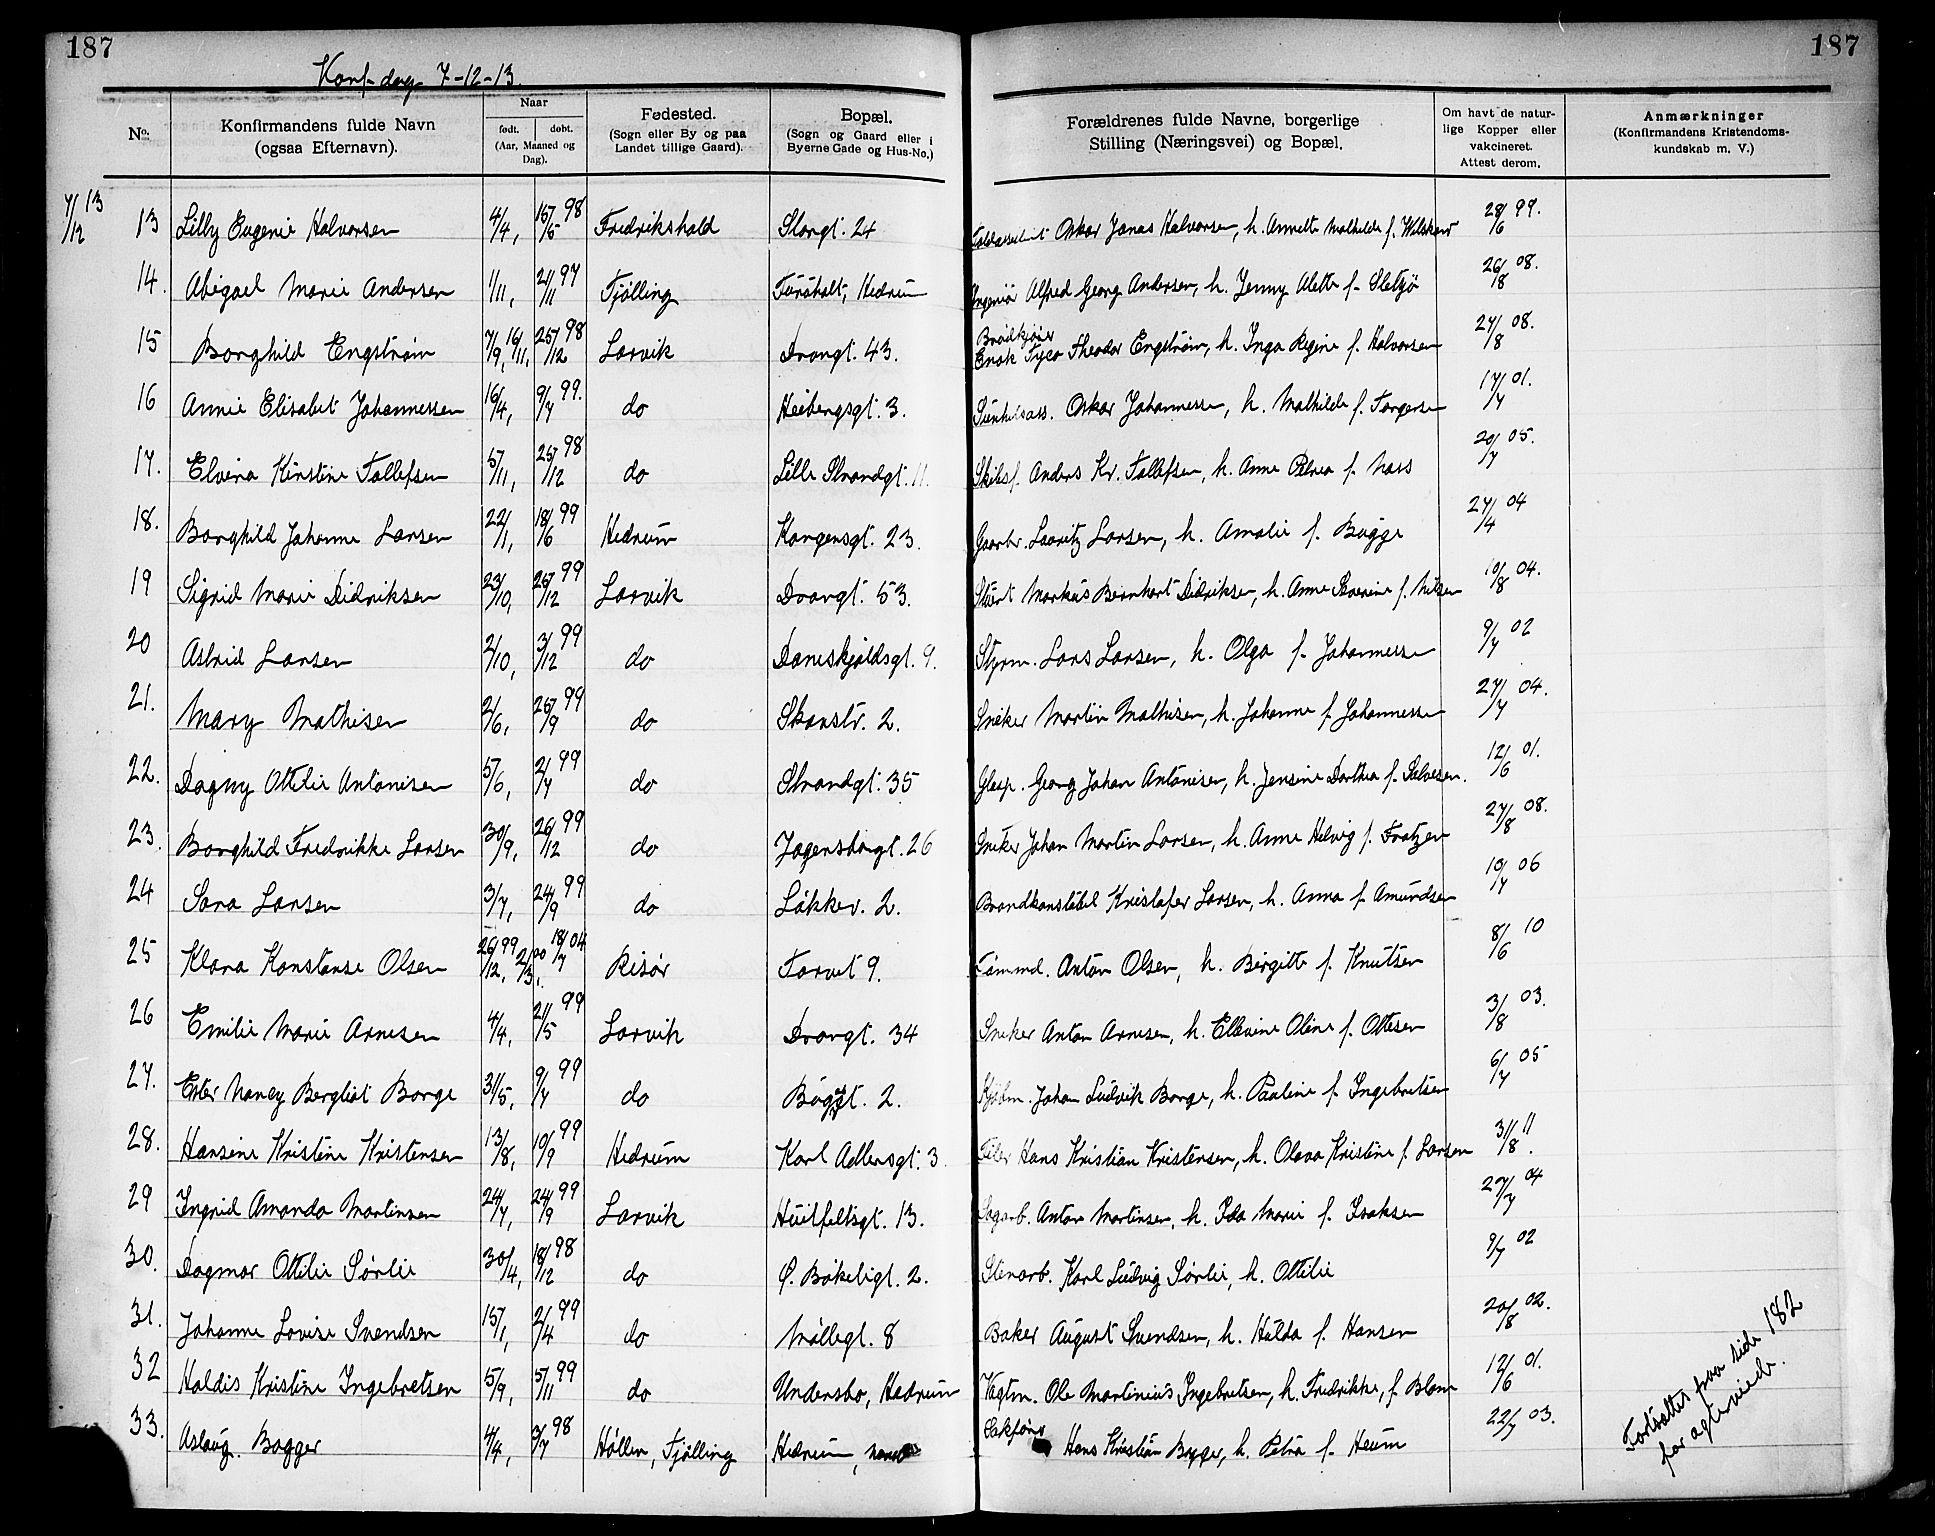 187
187
Konf-dag 7-12-13.
No. Konfirmandens fulde Navn (ogsaa Efternavn). Naar født. døbt. (Aar, Maaned og Dag). Fødested. (Sogn eller By og paa Landet tillige Gaard). Bopæl. (Sogn og Gaard eller i Byerne Gade og Hus-No.) Forældrenes fulde Navne, borgerlige Stilling (Næringsvei) og Bopæl. Om havt de naturlige Kopper eller vakcineret. Attest derom. Anmærkninger (Konfirmandens Kristendomskundskab m. V.)
7/12 13 13 Lilly Eugenie Halvorsen 4/4, 15/5 98 Fredrikshald Storgt. 24 Oskar Jonas Halvorsen, h. Annette Mathilde f. 28/6 99.
14. Abigael Marie Andersen 1/11, 21/11 97 Tjølling Furuholt, Hedrum Ingeniør Alfred Georg Andersen, h. Jenny Alette f. Sletsjø 26/8 08.
15 Borghild Engstrøm 7/9, 16/11, 25/12 98 Larvik Drongt. 43. Enok Tyco Theodor Engstrøm, h. Inga Regine f. Halvorsen 27/8 08.
16 Annie Elisabet Johannessen 16/4, 9/7 99. do Heibergsgt. 3. Oskar Johannessen, h. Mathilde f. Torgersen 17/7 01.
17. Elvina Kirstine Tollefsen 5/11, 25/12 98 do Lille Strandgt. 11. Skibsf. Anders Kr. Tollefsen, h. Anne Petrea f. Nass 20/7 05.
18. Borghild Johanne Larsen 22/1, 18/6 99 Hedrum Kongensgt. 23. Gaarbr. Lauritz Larsen, h. Amalie f. Bugge 27/4 04
19 Sigrid Marie Didriksen 23/10, 26/12 99 Larvik Drongt. 53. Stuert Markus Bernhart Didriksen, h. Anne Severine f. Nilsen 10/8 04.
20 Astrid Larsen 2/10, 3/12 99 do Daneskjoldsgt. 9. Styrm. Lars Larsen, h. Olga f. Johannessen 9/7 02
21. Mary Mathisen 2/6, 25/9 99 do Skanstr. 2. Snéker Martin Mathisen, h. Johanne f. Johannessen 27/7 04.
22. Dagny Ottilie Antonisen 5/6, 2/7 99 do Strandgt. 35 Glasp. Georg Johan Antonisen, h. Jensine Dorthea f. Salvesen. 12/6 01.
23. Borghild Fredrikke Larsen 30/9, 26/12 99 do Jegersborgt. 26 Sneker Johan Martin Larsen, h. Anne Helvig f. Frotzen 27/8 08.
24 Sara Larsen 3/7, 24/9 99 do Løkkev. 2. Brandkonstabel Kristofer Larsen, h. Anna f. Amundsen 10/7 06
25 Klara Konstanse Olsen 26/12 99, 2/3 00, 18/7 04 Risør Torvet 9. Tømmd. Anton Olsen, h. Birgitte f. Knutsen 8/6 10
26 Emilie Marie Arnesen 4/4, 21/5 99 Larvik Drongt. 34 Sneker Anton Arnesen, h. Ellevine Oline f. Ottesen 3/8 03.
27. Ester Nancy Bergliot Borge 31/5, 9/7 99 do Bøggt. 2. Kjøbm. Johan Ludvik Borge, h. Pauline f. Ingebretsen 6/7 05
28. Hansine Kristine Kristensen 13/8, 10/9 99 Hedrum Karl Adlersgt. 3. Filer Hans Kristian Kristensen, h. Olava Kristine f. Larsen 31/8 11.
29 Ingrid Amanda Martinsen 24/7, 24/9 99 Larvik Huitfeltsgt. 13. Sagarb. Anton Martinsen, h. Ida Marie f. Isaksen 27/7 04
30. Dagmar Ottilie Sørlie 30/4, 18/12 98 do Ø. Bøkeligt. 2. Stenarb. Karl Ludvig Sørlie, h. Ottilie 9/7 02
31. Johanne Lovise Svendsen 15/1, 2/4 99 do Møllegt. 8 Baker August Svendsen, h. Hulda f. Hansen 20/8 02.
32 Haldis Kristine Ingebretsen 5/9, 5/11 99 do Undersbo, Hedrum Vagtm. Ole Martinius Ingebretsen, h. Fredrikke, f. Blom 12/6 01.
33. Aslaug Bagger 4/4, 3/7 98 Hollen, Tjølling Hedrum, Sakfører Hans Kristian Bagger, h. Petra f. Heum 22/7 03.
Fortsættes paa side 182